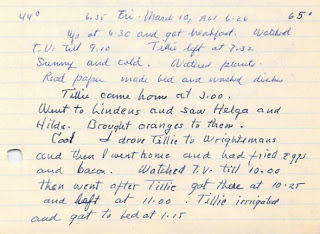 44° 6.35 Fri. March 10, 1961 6-26 65°
Up at 6:30 and got breakfast. Watched
T.V. till 9.10 Tillie left at 7.32
Sunny and cold. Watered plants.
Read paper made bed and washed dishes
Tillie came home at 3.00.
Went to Lindens and saw Helga and
Hilda. Brought oranges to them.
Cool I drove Tillie to Wrightsmans
and then I went home and had fried eggs
and bacon. Watched T.V. till 10.00
then went after Tillie got there at 10.25
and left at 11.00. Tillie irrigated
and got to bed at 1.15